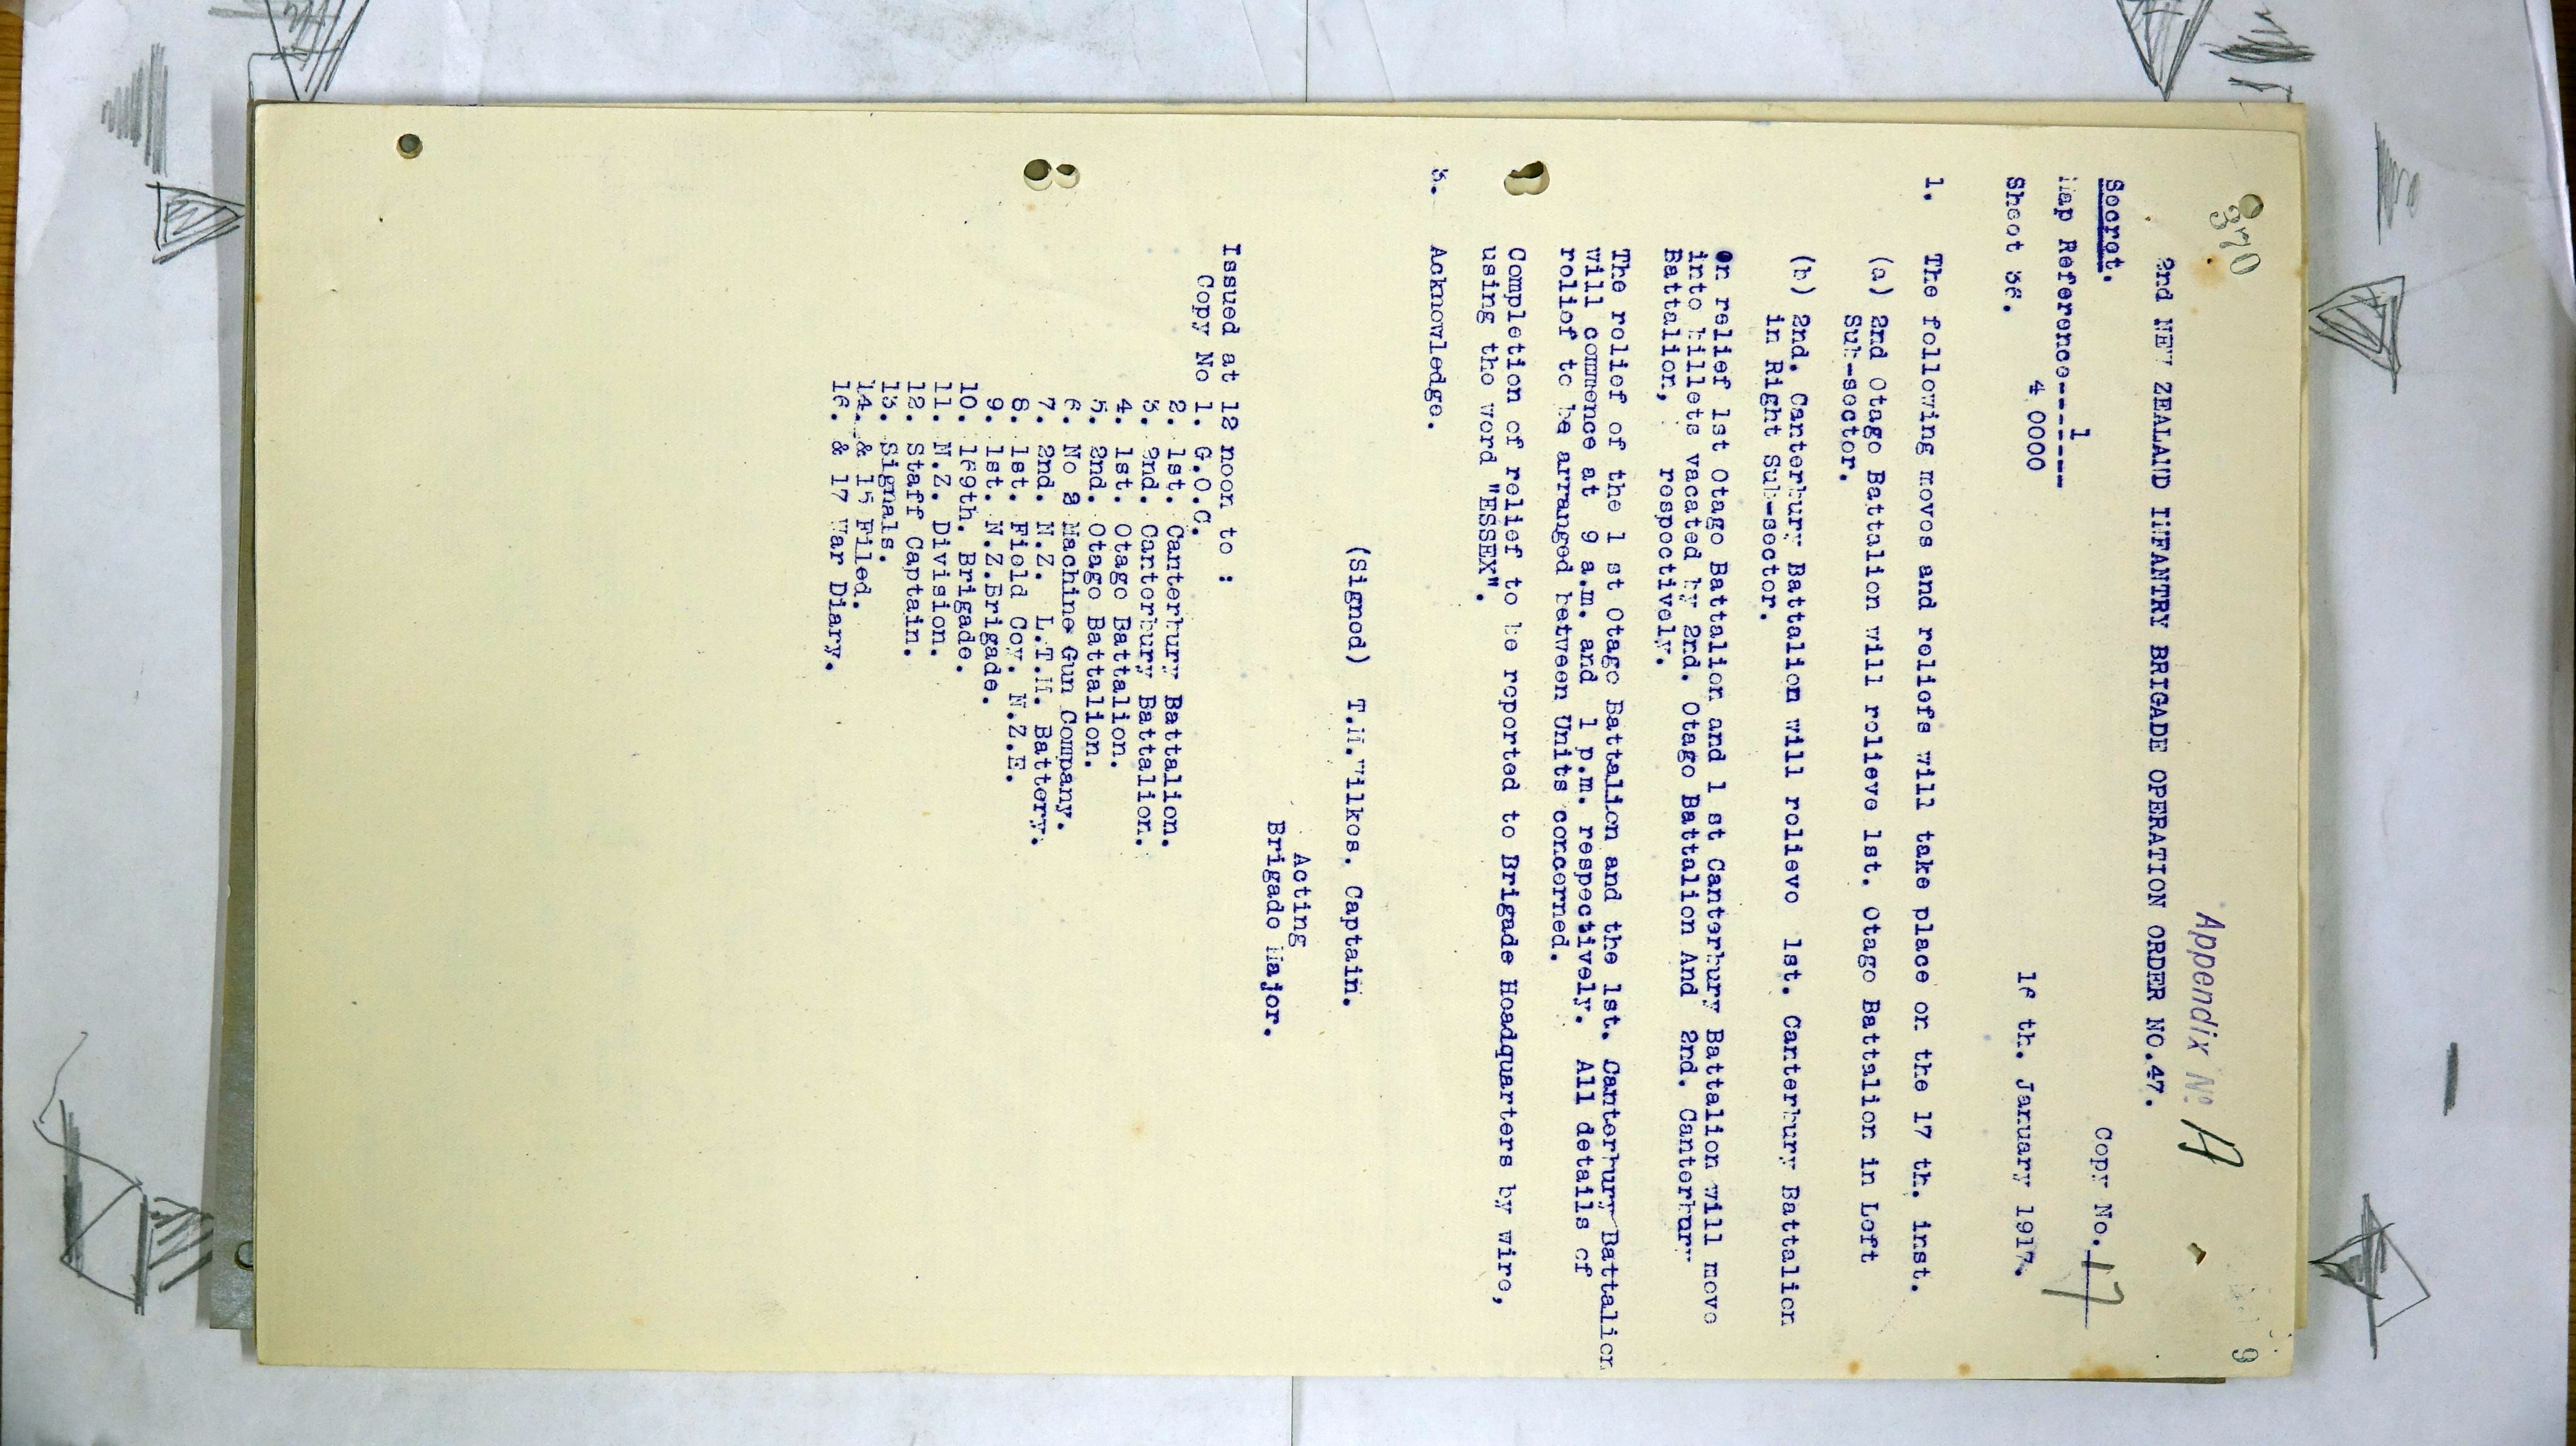 370
Appendix No A
9
2nd NEW ZEALAND INFANTRY BRIGADE OPERATION ORDER NO.47.
Secret.
Copy No. 17
Map Reference--1-----
4 0000
Sheet 36.
16 th. January 1917.
1. The following moves and reliefs will take place on the 17 th. inst.
(a) 2nd Otago Battalion will relieve 1st. Otago Battalion in Left
Sub-sector.
(b) 2nd. Canterbury Battalion will relieve 1st. Canterbury Battalion
in Right Sub-sector.
On relief 1st Otago Battalion and 1 st Canterbury Battalion will move
into billets vacated by 2nd. Otago Battalion And 2nd. Canterbury
Battalion, respectively.
The relief of the 1 st Otago Battalion and the 1st. Canterbury Battalion
will commence at 9 a.m. and 1 p.m. respectively. All details of
relief to be arranged between Units concerned.
Completion of relief to be reported to Brigade Headquarters by wire,
using the word "ESSEX".
3. Acknowledge.
(Signed) T.M.Wilkes. Captain.
Acting
Brigade Major.
Issued at 12 noon to :
Copy No 1. G.O.C.
2. 1st. Canterbury Battalion.
3. 2nd. Canterbury Battalion.
4. 1st. Otago Battalion.
5. 2nd. Otago Battalion.
6. No 2 Machine Gun Company.
7. 2nd. N.Z. L.T.M. Battery.
8. 1st. Field Coy. N.Z.E.
9. 1st. N.Z.Brigade.
10. 169th. Brigade.
11. N.Z. Division.
12. Staff Captain.
13. Signals.
14. & 15 Filed.
16. & 17 War Diary.